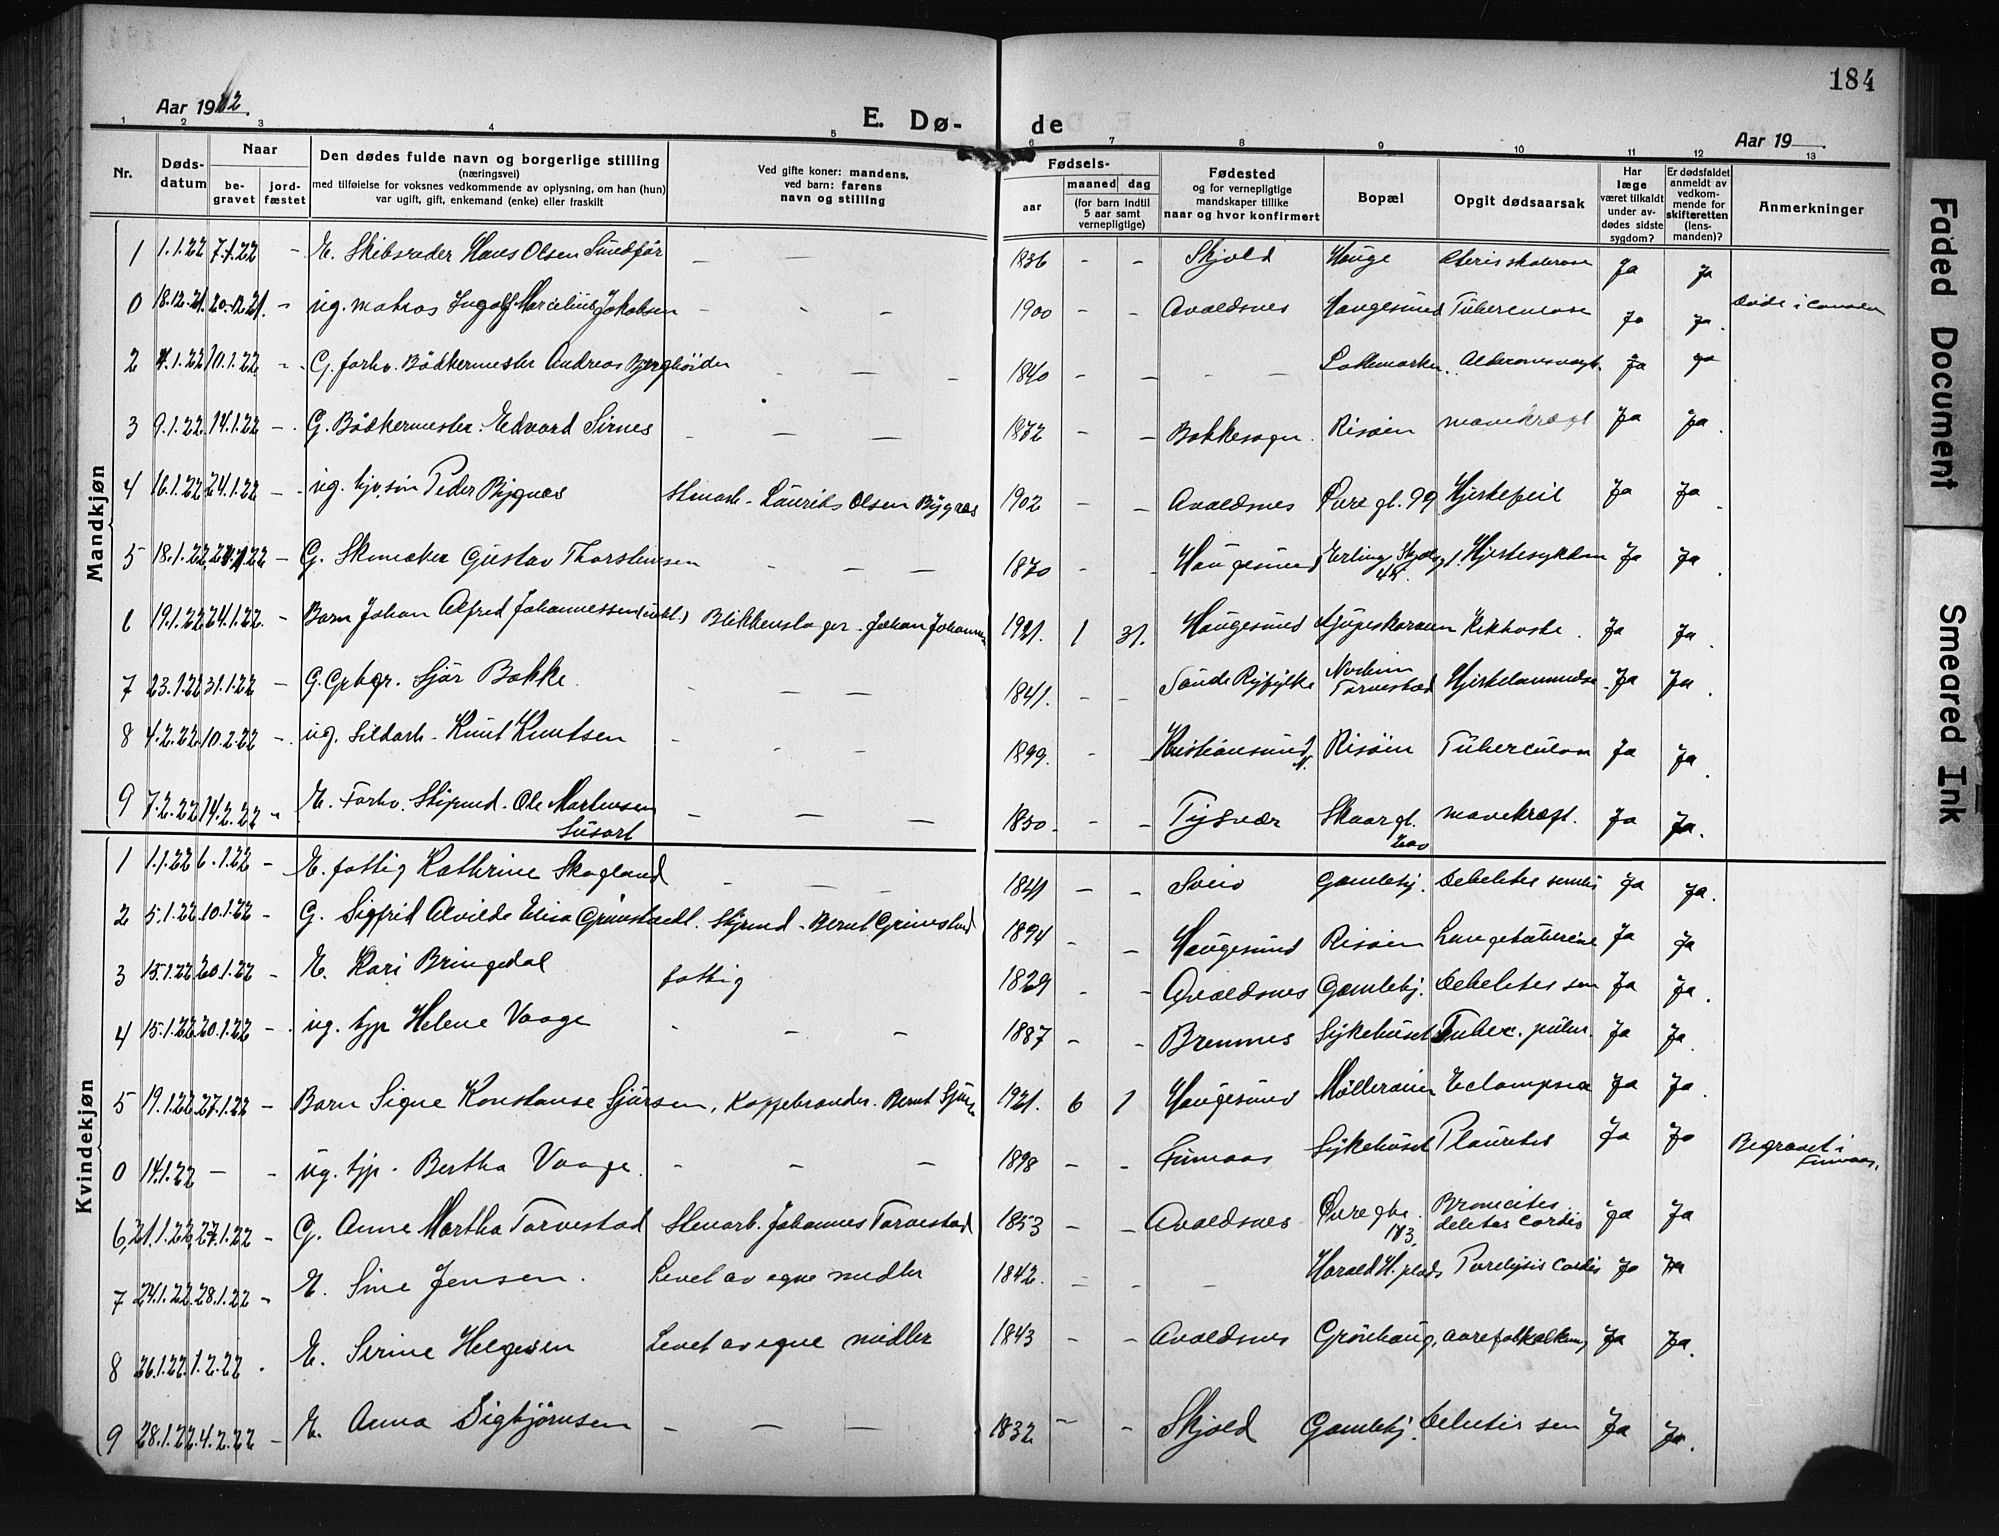 184
Aar 1922.
E. Dø- de
Aar 19
1 2 3 4 5 6 7 8 9 10 11 12 13
Nr. | Døds-datum | Naar be-gravet | jord-fæstet | Den dødes fulde navn og borgerlige stilling (næringsvei) med tilføielse for voksnes vedkommende av oplysning, om han (hun) var ugift, gift, enkemand (enke) eller fraskilt | Ved gifte koner: mandens, ved barn: farens navn og stilling | Fødsels- aar | maaned | dag (for barn indtil 5 aar samt vernepligtige) | Fødested og for vernepligtige mandskaper tillike naar og hvor konfirmert | Bopæl | Opgit dødsaarsak | Har læge været tilkaldt under av-dødes sidste sygdom? | Er dødsfaldet anmeldt av vedkom-mende for skifteretten (lens-manden)? | Anmerkninger
Mandkjøn
1 | 1.1.22 | 7.1.22 | - | E. Skibsreder Hans Olsen Sundfør | - | - | 1836 | - | - | Skjold | Hauge | Ja | Ja
0 | 18.12.21. | 20.12.21. | - | ug. matros Ingolf Marcelius Jakobsen | - | - | - | 1900 | - | - | Avaldsnes | Haugesund | Tuberculose | Ja | Ja.
2 | 4.1.22 | 10.1.22 | - | G. forhv. Bødkermester Andreas | - | - | - | 1840 | - | - | - | - | Ja | Ja
3 | 9.1.22 | 14.1.22 | - | G. Bødkermester Edvard Sirnes | - | - | - | 1872 | - | - | Bokkesogn. | Risøen | mavekræft | Ja | Ja.
4 | 16.1.22 | 24.1.22 | - | ug. hjv. søn Peder Bygnes | Stenarb. Laurits Olsen Bygnes | 1902 | - | - | Avaldsnes | Øvre gt. 99 | Hjertefeil | Ja | Ja
5 | 18.1.22. | 24.1.22 | - | G. Skomaker Gustav Thorstensen | - | - | - | 1870 | - | - | Haugesund | Erling Skjalg. 45. | Hjertesykdom | Ja | Ja.
6 | 19.1.22 | 24.1.22. | - | Barn Johan Alfred Johannessen | Blikkenslager. Johan Johannes | 1921. | 1 | 31. | Haugesund | Kikhoste. | Ja | Ja.
7 | 23.1.22 | 31.1.22 | - | G. Grbgr. Sjur Bokke. | - | - | - | 1841. | - | - | Sande Ryfylke | Torvestad | Ja | Ja.
8 | 4.2.22. | 10.2.22 | - | ug. Sildarb. Knut Knutsen | - | - | - | 1899. | - | - | Kristiansund N. | Risøen | Tuberculose | Ja | Ja.
9 | 7.2.22 | 14.2.22 | - | E. Forhv. Skipmd. Ole Martensen Susort | - | - | - | 1850. | - | - | Tysvær | Skaargt. | mavekræft. | Ja | Ja.
Kvindekjøn
1 | 1.1.22 | 6.1.22 | - | E. fattig Kathrine Skogland | - | - | - | 1841 | - | - | Sveio | Gamlehj. | Debelites senilis | Ja | Ja.
2 | 5.1.22 | 10.1.22 | - | G. Sigfrid Alvilde Elisa Grimstvedt. | Skipmd. Bernt Grimstved | 1894 | - | - | Haugesund | Risøen | Lungetuberculose | Ja | Ja
3 | 15.1.22 | 20.1.22 | - | E. Kari Bringedal | fattig | 1829 | - | - | Avaldsnes | Gamlehj. | Debelites sen | Ja | Ja.
4 | 15.1.22 | 20.1.22 | - | ug. hjp Helene Vaage | - | - | - | 1887 | - | - | Bremnes | Sykehuset | Tuberc. pulm. | Ja | Ja.
5 | 19.1.22 | 27.1.22 | - | Barn Signe Konstanse Sjursen, | Kaffebrænder. Bernt Sjurs | 1921. | 6 | 1 | Haugesund | Eclampsia | Ja | Ja.
0 | 14.1.22 | - | - | ug. hjp. Bertha Vaage. | - | - | - | 1898 | - | - | Finnaas | Sykehuset | Plauretes | Ja | Ja | Begravet i Finnaas.
6 | 21.1.22 | 27.1.22 | - | G. Anne Martha Torvestad | Stenarb. Johannes Torvestad | 1853 | - | - | Avaldsnes | Øvregte. 183. | Broncites debetas cordis | Ja | Ja
7 | 24.1.22. | 28.1.22 | - | E. Sine Jensen. | Levet av egne midler | 1842. | - | - | - | Harald H. plads | Paralysis cordis | Ja | Ja
8 | 26.1.22. | 1.2.22 | . | E. Serine Helgesen | Levet av egne midler | 1843 | - | - | Avaldsnes | Grønhaug, | aareforkalkning | Ja | Ja.
9 | 28.1.22. | 4.2.22 | - | E. Anna Sigbjørnsen | - | - | - | 1832 | - | - | Skjold | Gamlehj. | Debetis sen | Ja | Ja.
Faded Document
Smeared Ink